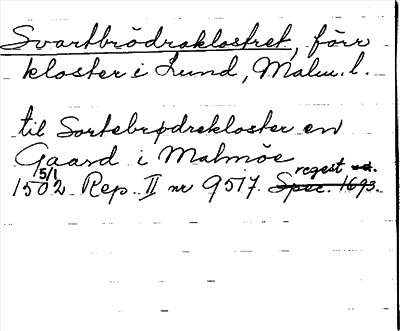 Svartbrödraklostret, förr
kloster i Lund, Malm. l.
til Sortebrødrekloster en
Gaard i Malmöe
regest
1502 5/1 Rep. II nr 9517. Spec. 1693.